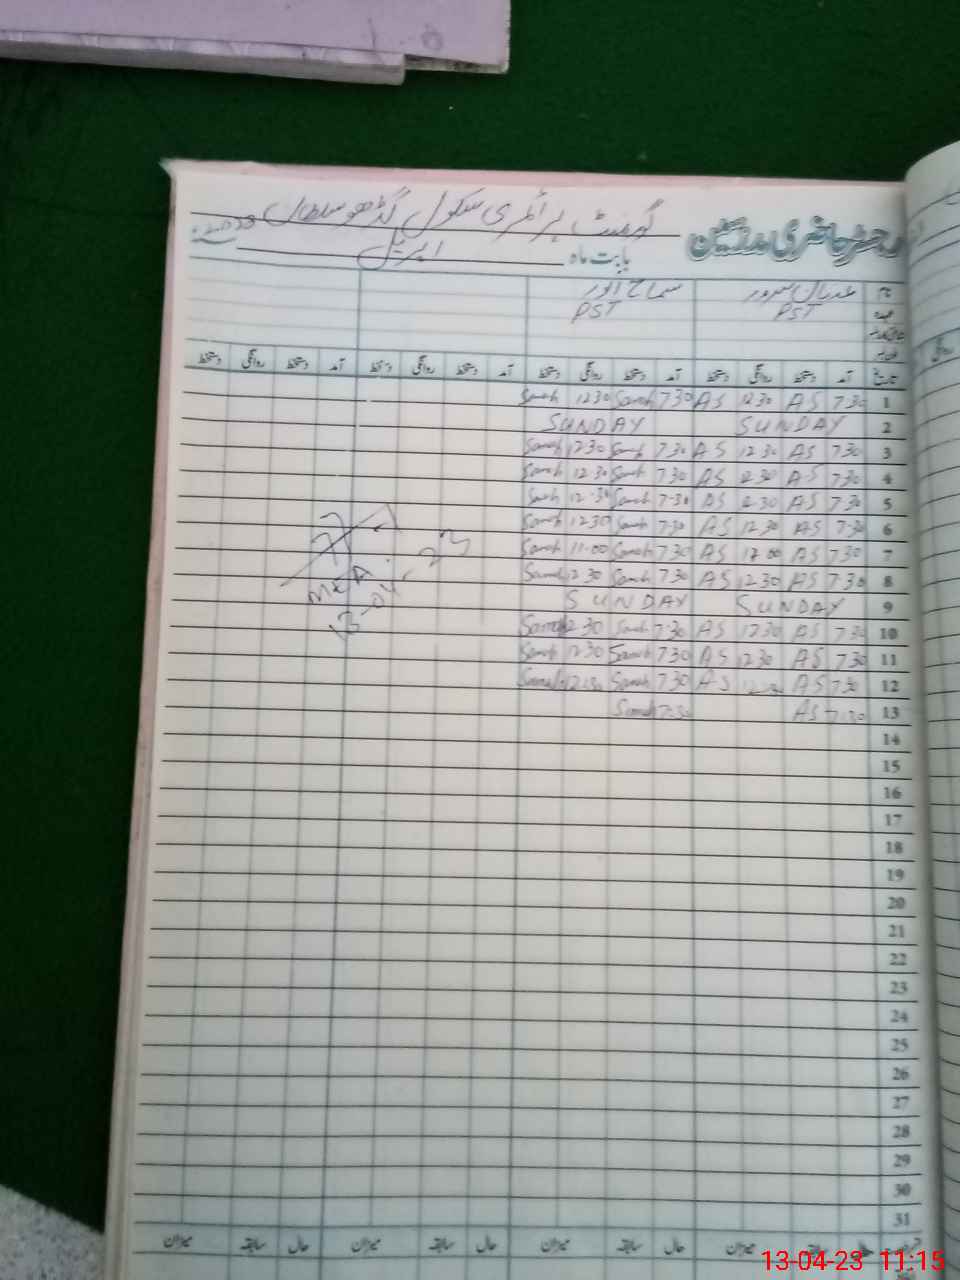 رجسٹر حاضری مدرسین گورنمنٹ پرائمری سکول گڈھو سلطان 2023ء
بابت ماہ اپریل
نام سماح انور
عہدہ PST PST
تاریخ آمد دستخط روانگی دستخط آمد دستخط روانگی دستخط آمد دستخط روانگی دستخط آمد دستخط روانگی دستخط
1 7.30 AS 12.30 AS 7.30 Samah 12.30 Samah
2 SUNDAY SUNDAY
3 7.30 AS 12.30 AS 7.30 Samah 12.30 Samah
4 7.30 AS 12.30 AS 7.30 Samah 12.30 Samah
5 7.30 AS 12.30 AS 7-30 Samah 12-30 Samah
6 7.30 AS 12.30 AS 7.30 Samah 12.30 Samah
7 7.30 AS 12.00 AS 7.30 Samah 11.00 Samah
8 7.30 AS 12.30 AS 7.30 Samah 12.30 Samah
9 SUNDAY SUNDAY
10 7.30 AS 12.30 AS 7.30 Samah 12.30 Samah
11 7.30 AS 12.30 AS 7.30 Samah 12.30 Samah
12 7.30 AS 12.30 AS 7.30 Samah 12.30 Samah
13 7.30 AS 7.30 Samah
MEA
13-04-23
14
15
16
17
18
19
20
21
22
23
24
25
26
27
28
29
30
31
حال سابقہ میزان حال سابقہ میزان حال سابقہ میزان حال سابقہ میزان
13-04-23 11:15